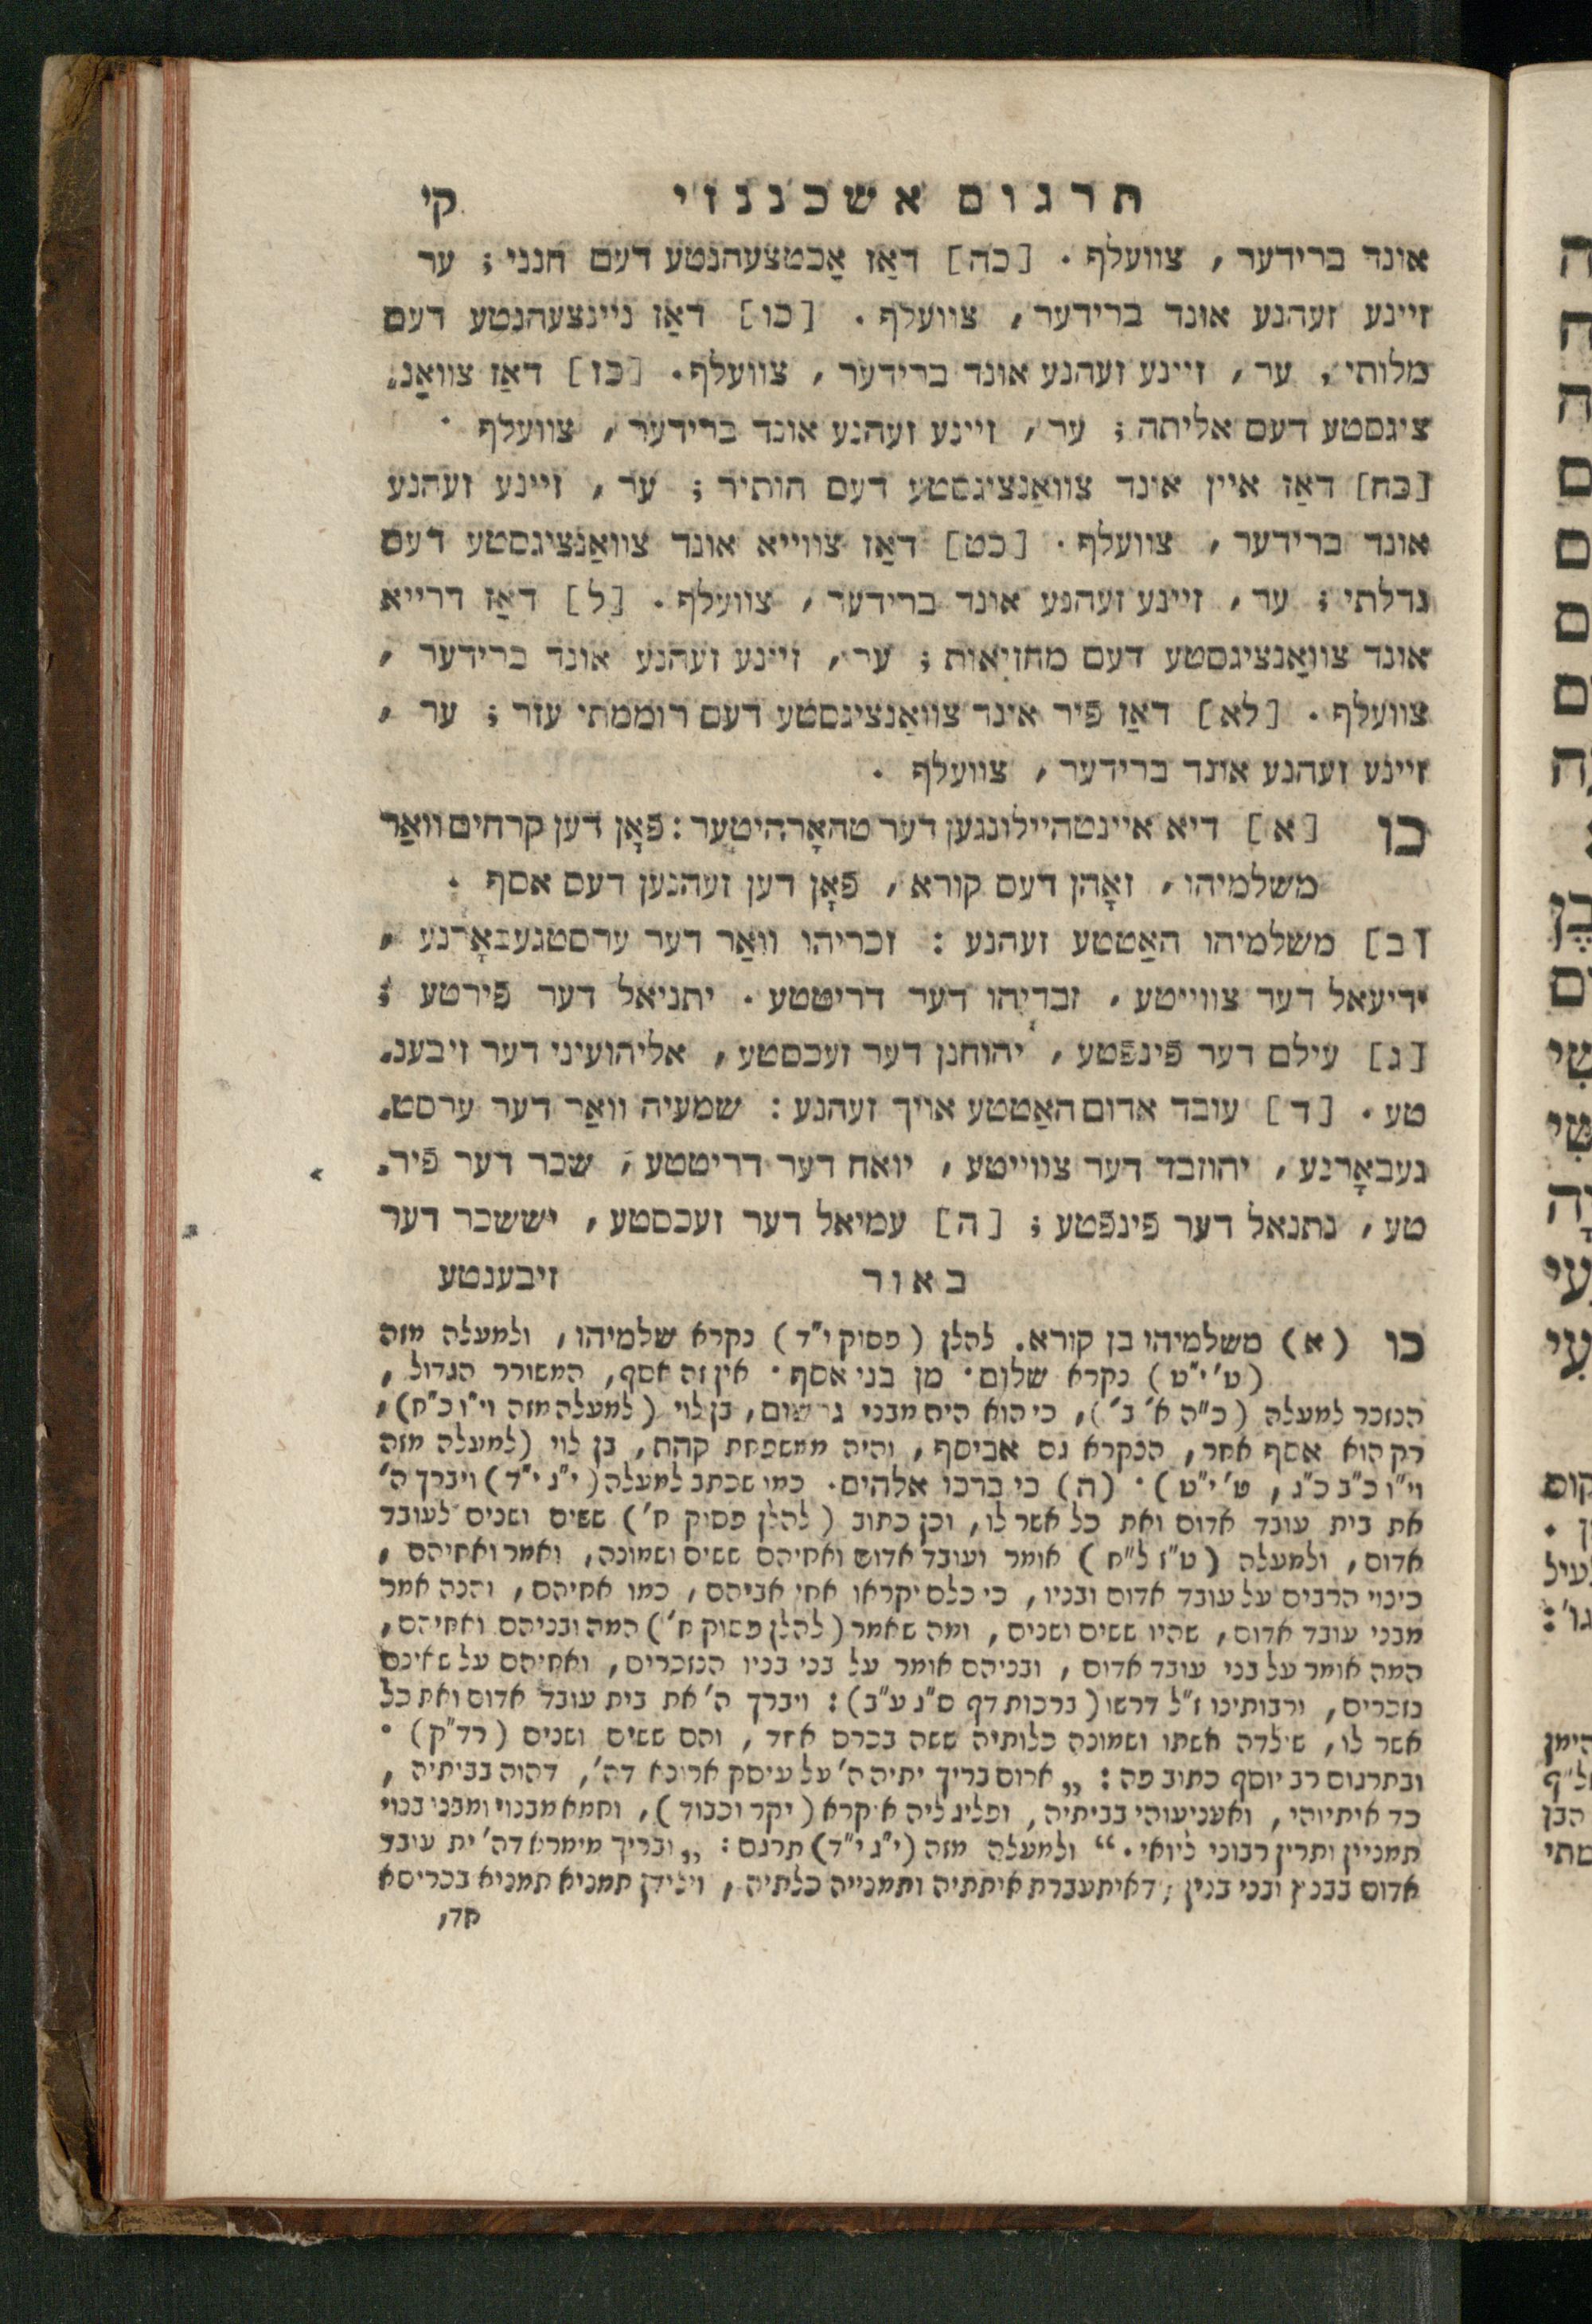 תרגום אשכנזי קי
אונד ברידער, צוועלף. [כה] דאַז אָכטצעהנטע דעם חנני; ער
זיינע זעהנע אונד ברידער, צוועלף. [כו] דאַז ניינצעהנטע דעם
מלותי, ער, זיינע זעהנע אונד ברידער, צוועלף. [כז] דאַז צוואַנ.
ציגסטע דעם אליתה; ער, זיינע זעהנע אונד ברידער, צוועלף.
[כח] דאַז איין אונד צוואַנציגסטע דעם הותיר; ער, זיינע זעהנע
אונד ברידער, צוועלף. [כט] דאַז צווייא אונד צוואַנציגסטע דעם
גדלתי; ער, זיינע זעהנע אונד ברידער, צוועלף. [ל] דאַז דרייא
אונד צוואַנציגסטע דעם מחזיאות; ער, זיינע זעהנע אונד ברידער,
צוועלף. [לא] דאַז פיר אינד צוואַנציגסטע דעם רוממתי עזר; ער,
זיינע זעהנע אונד ברידער, צוועלף.
כו [א] דיא איינטהיילונגען דער טהאָרהיטער: פאָן דען קרחים וואַר
משלמיהו, זאָהן דעם קורא, פאָן דען זעהנען דעם אסף.
[ב] משלמיהו האַטטע זעהנע: זכריהו וואַר דער ערסטגעבאָרנע,
ידיעאל דער צווייטע, זבדיהו דער דריטטע. יתניאל דער פירטע;
[ג] עילם דער פינפטע, יהוחנן דער זעכסטע, אליהועיני דער זיבענ.
טע. [ד] עובד אדום האַטטע אויך זעהנע: שמעיה וואַר דער ערסט.
געבאָרנע, יהוזבד דער צווייטע, יואח דער דריטטע, שכר דער פיר.
טע, נתנאל דער פינפטע; [ה] עמיאל דער זעכסטע, יששכר דער
באור זיבענטע
כו (א) משלמיהו בן קורא. להלן (פסוק י"ד) נקרא שלמיהו, ולמעלה מזה
(ט' י"ט) נקרא שלום. מן בני אסף. אין זה אסף, המשורר הגדול,
הנזכר למעלה (כ"ה א' ב'), כי הוא היה מבני גרשום, בן לוי (למעלה מזה וי"ו כ"ח),
רק הוא אסף אחר, הנקרא גם אביסף, והיה ממשפחת קהת, בן לוי (למעלה מזה
וי"ו כ"ב כ"ג, ט' י"ט). (ה) כי ברכו אלהים. כמו שכתב למעלה (י"ג י"ד) ויברך ה'
את בית עובד אדום ואת כל אשר לו, וכן כתוב (להלן פסוק ח') ששים ושנים לעובד
אדום, ולמעלה (ט"ז ל"ח) אומר ועובד אדום ואחיהם ששים ושמונה, ואמר ואחיהם,
כינוי הרבים על עובד אדום ובניו, כי כלם יקראו אחי אביהם, כמו אחיהם, והנה אמר
מבני עובד אדום, שהיו ששים ושנים, ומה שאמר (להלן פסוק ח') המה ובניהם ואחיהם,
המה אומר על בני עובד אדום, ובניהם אומר על בני בניו הנזכרים, ואחיהם על שאינם
נזכרים, ורבותינו ז"ל דרשו (ברכות דף ס"ג ע"ב): ויברך ה' את בית עובד אדום ואת כל
אשר לו, שילדה אשתו ושמונה כלותיה ששה בכרס אחד, והם ששים ושנים (רד"ק).
ובתרגום רב יוסף כתוב פה: „ארום בריך יתיה ה' על עיסק ארונא דה', דהוה בביתיה,
כד איתיוהי, ואעניעוהי בביתיה, ופליג ליה איקרא (יקר וכבוד), וחמא מבנוי ומבני בנוי
תמניין ותרין רבוני ליואי." ולמעלה מזה (י"ג י"ד) תרגם: „ובריך מימרא דה' ית עובד
אדום בבנין ובני בנין, דאיתעברת איתתיה ותמנייה כלתיה, וילידן תמניא תמניא בכריסא
חד,